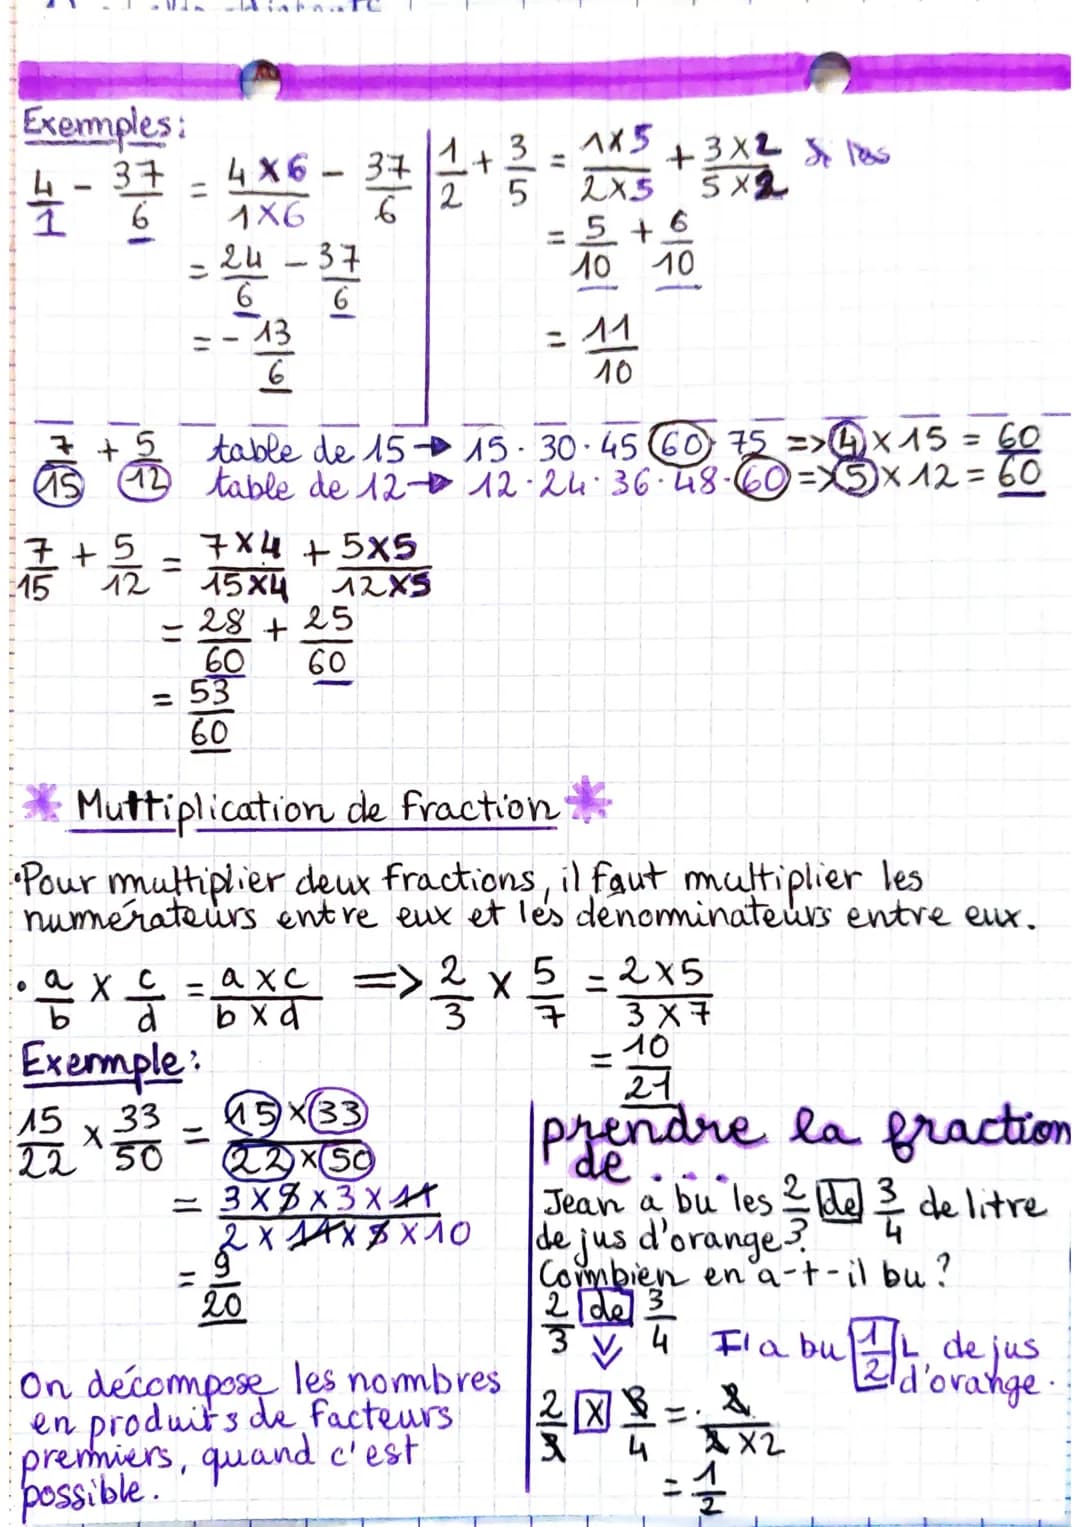 Exemples:
4/1 - 37/6 = 4×6/1×6 - 37/6
= 24/6 - 37/6
= - 13/6
1/2 + 3/5 = 1×5/2×5 + 3×2/5×2 Si les
= 5/10 + 6/10
= 11/10
7/15 + 5/12
table de 15 → 15 · 30 · 45 · 60 · 75 => 4 × 15 = 60
table de 12 → 12 · 24 · 36 · 48 · 60 => 5 × 12 = 60
7/15 + 5/12 = 7×4/15×4 + 5×5/12×5
= 28/60 + 25/60
= 53/60
* Multiplication de fraction *
• Pour multiplier deux fractions, il faut multiplier les
numérateurs entre eux et les dénominateurs entre eux.
• a/b × c/d = a×c/b×d => 2/3 × 5/7 = 2×5/3×7
= 10/21
Exemple:
15/22 × 33/50 = 15×33/22×50
= 3×5×3×11/2×11×5×10
= 9/20
On décompose les nombres
en produits de facteurs
premiers, quand c'est
possible.
prendre la fraction
de...
Jean a bu les 2/3 de 3/4 de litre
de jus d'orange.
Combien en a-t-il bu ?
2/3 de 3/4
Il a bu 1/2 L de jus
d'orange.
2/3 × 3/4 = 2/2×2
= 1/2